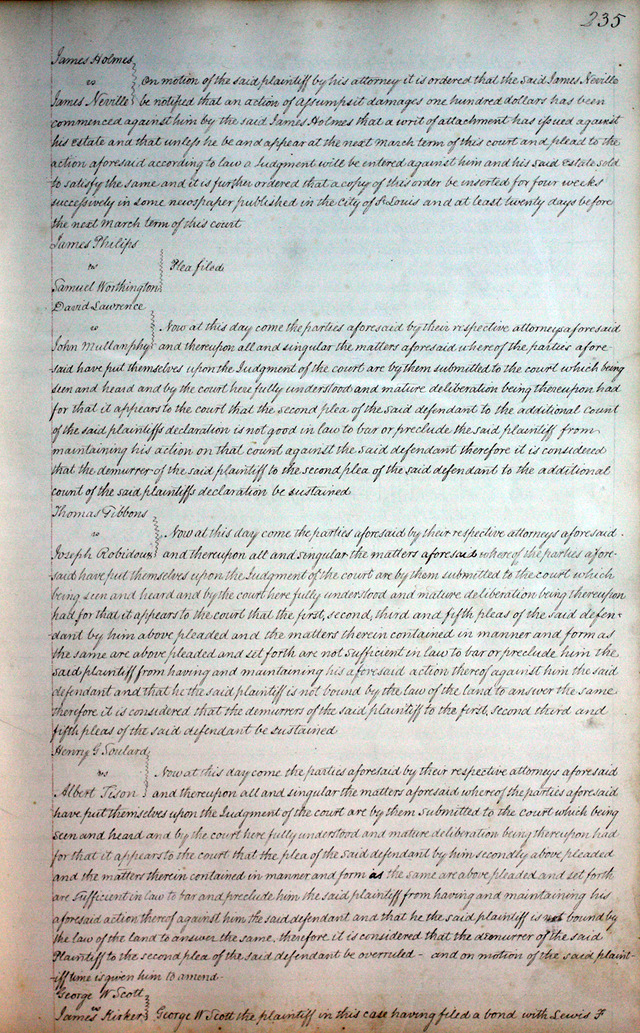 235
James Holmes
vs On motion of the said plaintiff by his attorney it is ordered that the said James Neville
James Neville be notified that an action of assumpsit damages one hundred dollars has been
commenced against him by the said James Holmes that a writ of attachment has issued against
his estate and that unless he be and appear at the next March term of this court and plead to the
action aforesaid according to law a Judgment will be entered against him and his said estate sold
to satisfy the same and it is further ordered that a copy of this order be inserted for four weeks
successively in some newspaper published in the City of St Louis and at least twenty days before
the next March term of this court
James Philips
vs Plea filed
Samuel Worthington
David Lawrence
vs Now at this day come the parties aforesaid by their respective attorneys aforesaid
John Mullanphy and thereupon all and singular the matters aforesaid whereof the parties afore-
said have put themselves upon the Judgment of the court are by them submitted to the court which being
seen and heard and by the court here fully understood and mature deliberation being thereupon had
for that it appears to the court that the second plea of the said defendant to the additional count
of the said plaintiffs declaration is not good in law to bar or preclude the said plaintiff from
maintaining his action on that count against the said defendant therefore it is considered
that the demurrer of the said plaintiff to the second plea of the said defendant to the additional
count of the said plaintiffs declaration be sustained
Thomas Gibbons
vs Now at this day come the parties aforesaid by their respective attorneys aforesaid
Joseph Robidoux and thereupon all and singular the matters aforesaid whereof the parties afore-
said have put themselves upon the Judgment of the court are by them submitted to the court which
being seen and heard and by the court here fully understood and mature deliberation being thereupon
had for that it appears to the court that the first, second, third and fifth pleas of the said defen-
dant by him above pleaded and the matters therein contained in manner and form as
the same are above pleaded and set forth are not sufficient in law to bar or preclude him the
said plaintiff from having and maintaining his aforesaid action thereof against him the said
defendant and that he the said plaintiff is not bound by the law of the land to answer the same
therefore it is considered that the demurrers of the said plaintiff to the first, second third and
fifth pleas of the said defendant be sustained
Henry G Soulard
vs Now at this day come the parties aforesaid by their respective attorneys aforesaid
Albert Tison and thereupon all and singular the matters aforesaid whereof the parties aforesaid
have put themselves upon the Judgment of the court are by them submitted to the court which being
seen and heard and by the court here fully understood and mature deliberation being thereupon had
for that it appears to the court that the plea of the said defendant by him secondly above pleaded
and the matters therein contained in manner and form as the same are above pleaded and set forth
are sufficient in law to bar and preclude him the said plaintiff from having and maintaining his
aforesaid action thereof against him the said defendant and that he the said plaintiff is not bound by
the law of the land to answer the same, therefore it is considered that the demurrer of the said
Plaintiff to the second plea of the said defendant be overruled - and on motion of the said plaint-
iff time is given him to amend
George W Scott
vs
James Kerker George W Scott the plaintiff in this case having filed a bond with Lewis F